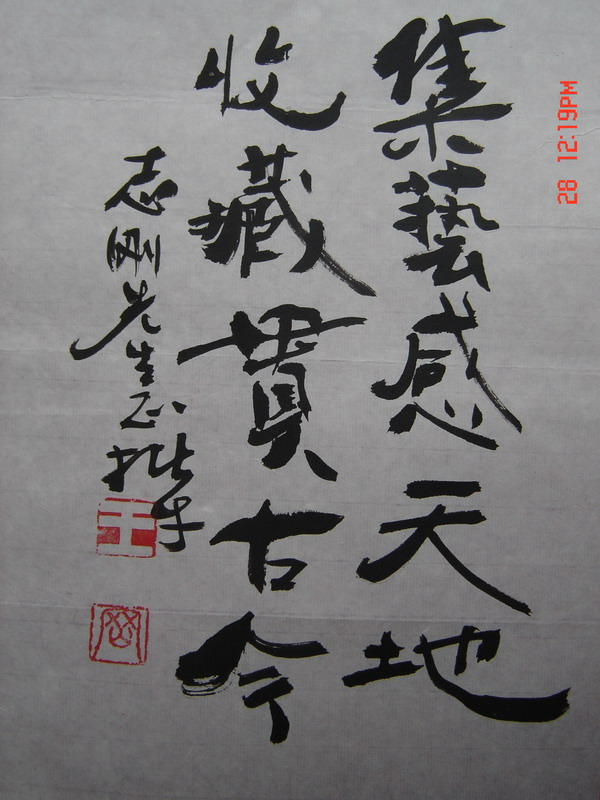 集藝感天地
收藏貫古今
志刚先生正 拙手
王
28 12:19PM